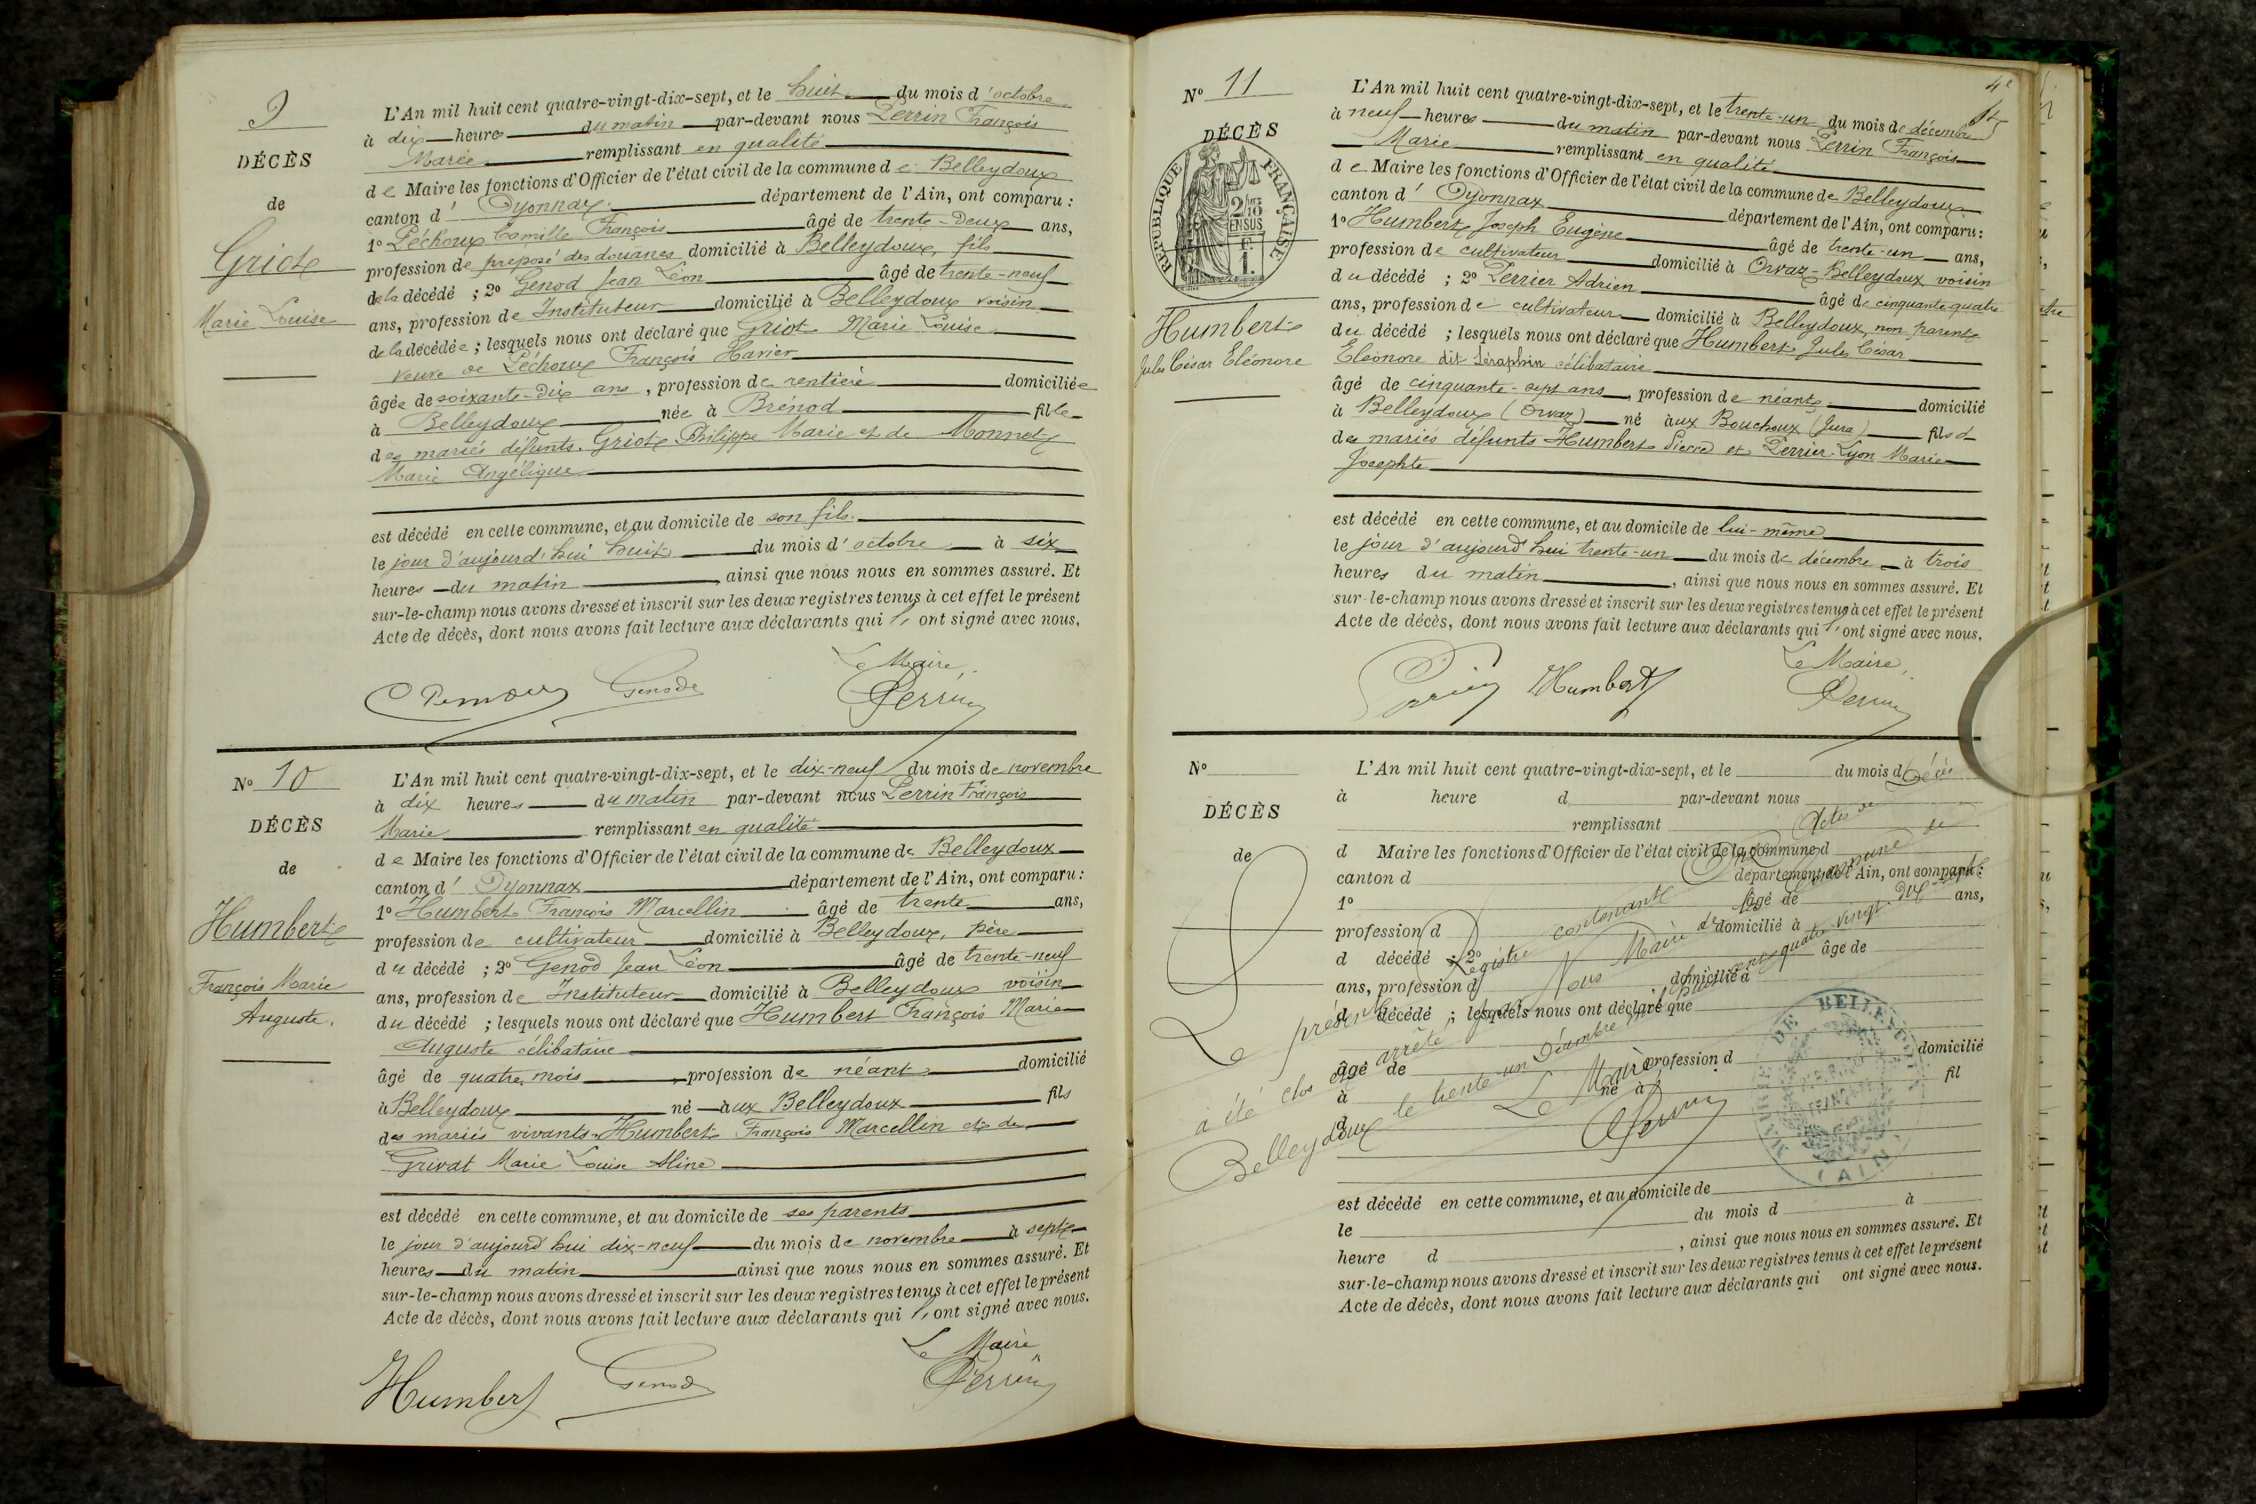 9
DÉCÈS
de
Griot
Marie Louise
L'An mil huit cent quatre-vingt-dix-sept, et le huit du mois d'octobre
à dix heures du matin par-devant nous Perrin François
Marie remplissant en qualité
de Maire les fonctions d'Officier de l'état civil de la commune de Belleydoux
canton d' Oyonnax département de l'Ain, ont comparu :
1º Péchoux Camille François âgé de trente-deux ans,
profession de préposé des douanes domicilié à Belleydoux, fils
de la décédé ; 2º Genod Jean Léon âgé de trente-neuf
ans, profession de Instituteur domicilié à Belleydoux voisin
de la décédée ; lesquels nous ont déclaré que Griot Marie Louise
veuve de Péchoux François Xavier
âgée de soixante-dix ans, profession de rentière domiciliée
à Belleydoux née à Brénod fille
des mariés défunts Griot Philippe Marie et de Monnet
Marie Angélique
est décédé en cette commune, et au domicile de son fils
le jour d'aujourd'hui huit du mois d'octobre à six
heures du matin, ainsi que nous nous en sommes assuré. Et
sur-le-champ nous avons dressé et inscrit sur les deux registres tenus à cet effet le présent
Acte de décès, dont nous avons fait lecture aux déclarants qui l'ont signé avec nous.
Le Maire,
Genod
Perrin
Nº 10
DÉCÈS
de
Humbert
François Marie
Auguste.
L'An mil huit cent quatre-vingt-dix-sept, et le dix-neuf du mois de novembre
à dix heures du matin par-devant nous Perrin François
Marie remplissant en qualité
de Maire les fonctions d'Officier de l'état civil de la commune de Belleydoux
canton d' Oyonnax département de l'Ain, ont comparu :
1º Humbert François Marcellin âgé de trente ans,
profession de cultivateur domicilié à Belleydoux, père
du décédé ; 2º Genod Jean Léon âgé de trente-neuf
ans, profession de Instituteur domicilié à Belleydoux voisin
du décédé ; lesquels nous ont déclaré que Humbert François Marie
Auguste célibataire
âgé de quatre mois, profession de néant domicilié
à Belleydoux né aux Belleydoux fils
des mariés vivants Humbert François Marcellin et de
Grivat Marie Louise Aline
est décédé en cette commune, et au domicile de ses parents
le jour d'aujourd'hui dix-neuf du mois de novembre à sept
heures du matin ainsi que nous nous en sommes assuré. Et
sur-le-champ nous avons dressé et inscrit sur les deux registres tenus à cet effet le présent
Acte de décès, dont nous avons fait lecture aux déclarants qui l'ont signé avec nous.
Le Maire
Humbert
Genod
Perrin
4e
Nº 11
DÉCÈS
RÉPUBLIQUE FRANÇAISE
2/10
EN SUS
1 F.
Humbert
Jules César Eléonore
L'An mil huit cent quatre-vingt-dix-sept, et le trente-un du mois de décembre
à neuf heures du matin par-devant nous Perrin François
Marie remplissant en qualité
de Maire les fonctions d'Officier de l'état civil de la commune de Belleydoux
canton d' Oyonnax département de l'Ain, ont comparu :
1º Humbert Joseph Eugène âgé de trente-un ans,
profession de cultivateur domicilié à Orvaz-Belleydoux voisin
du décédé ; 2º Perrier Adrien âgé de cinquante quatre
ans, profession de cultivateur domicilié à Belleydoux, non parent
du décédé ; lesquels nous ont déclaré que Humbert Jules César
Eléonore dit Séraphin célibataire
âgé de cinquante-sept ans, profession de néant domicilié
à Belleydoux (Orvaz) né aux Bouchoux (Jura) fils d
des mariés défunts Humbert Pierre et Perrier-Lyon Marie
Josephte
est décédé en cette commune, et au domicile de lui-même
le jour d'aujourd'hui trente-un du mois de décembre à trois
heures du matin, ainsi que nous nous en sommes assuré. Et
sur-le-champ nous avons dressé et inscrit sur les deux registres tenus à cet effet le présent
Acte de décès, dont nous avons fait lecture aux déclarants qui l'ont signé avec nous.
Le Maire,
Humbert
Perrin
Nº
DÉCÈS
de
L'An mil huit cent quatre-vingt-dix-sept, et le du mois d
à heure d par-devant nous
remplissant
d Maire les fonctions d'Officier de l'état civil de la commune d
canton d département de l'Ain, ont comparu :
1º âgé de ans,
profession d domicilié à
d décédé ; 2º âge de
ans, profession d domicilié à
d décédé ; lesquels nous ont déclaré que
âgé de profession d domicilié
à né à fil
d
est décédé en cette commune, et au domicile de
le du mois d à
heure d, ainsi que nous nous en sommes assuré. Et
sur-le-champ nous avons dressé et inscrit sur les deux registres tenus à cet effet le présent
Acte de décès, dont nous avons fait lecture aux déclarants qui ont signé avec nous.
Le présent Registre contenant Onze Actes de Décès
a été clos et arrêté par Nous Maire de la Commune de
Belleydoux le trente-un Décembre mil huit cent quatre vingt-dix-sept
Le Maire,
Perrin
MAIRIE DE BELLEYDOUX
(AIN)